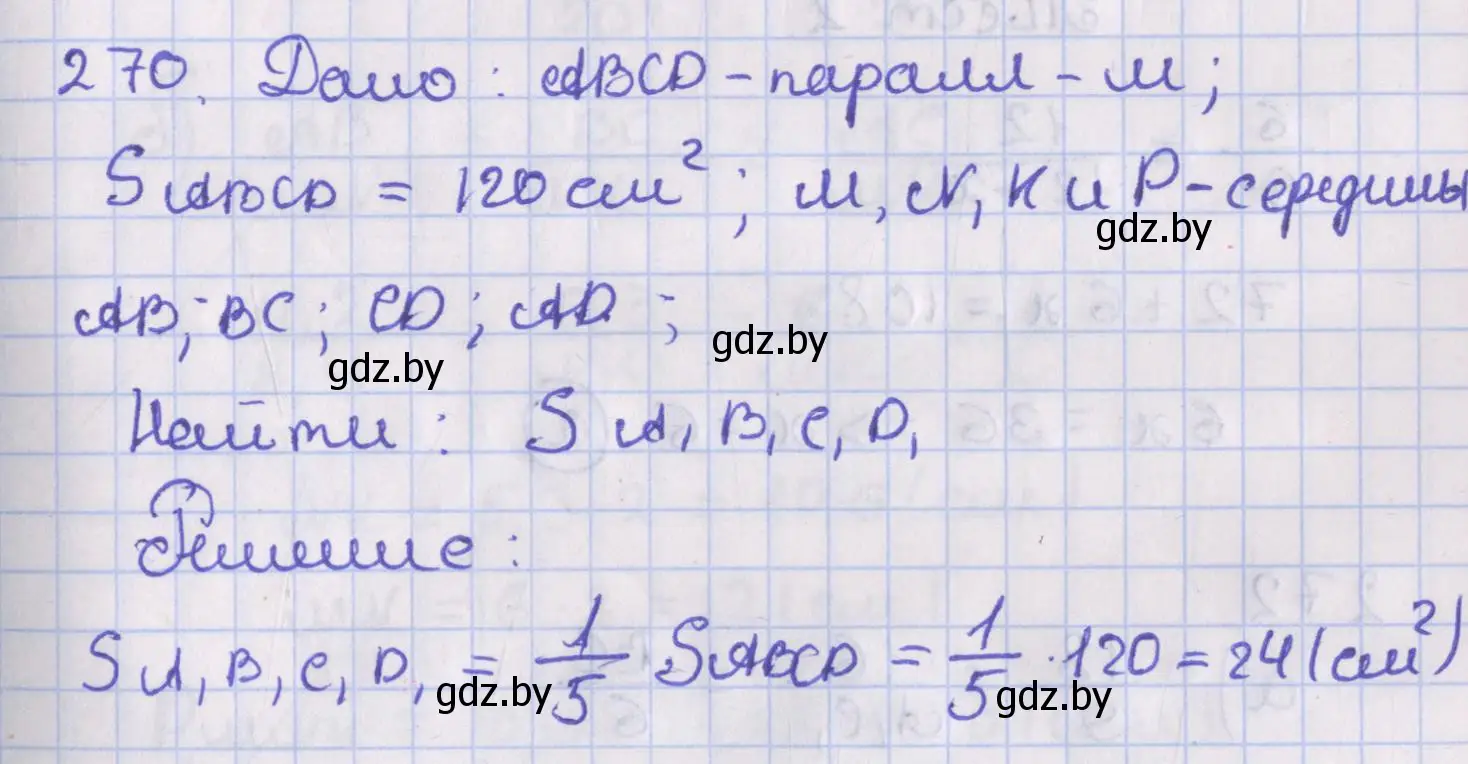 270. Дано: ABCD - паралл-м;
SABCD = 120 см²; M, N, K и P - середины
gdz.by
AB, BC; CD; AD;
gdz.by
gdz.by
Найти: SA₁B₁C₁D₁
Решение:
SA₁B₁C₁D₁ = 1/5 SABCD = 1/5 · 120 = 24 (см²)
gdz.by
gdz.by